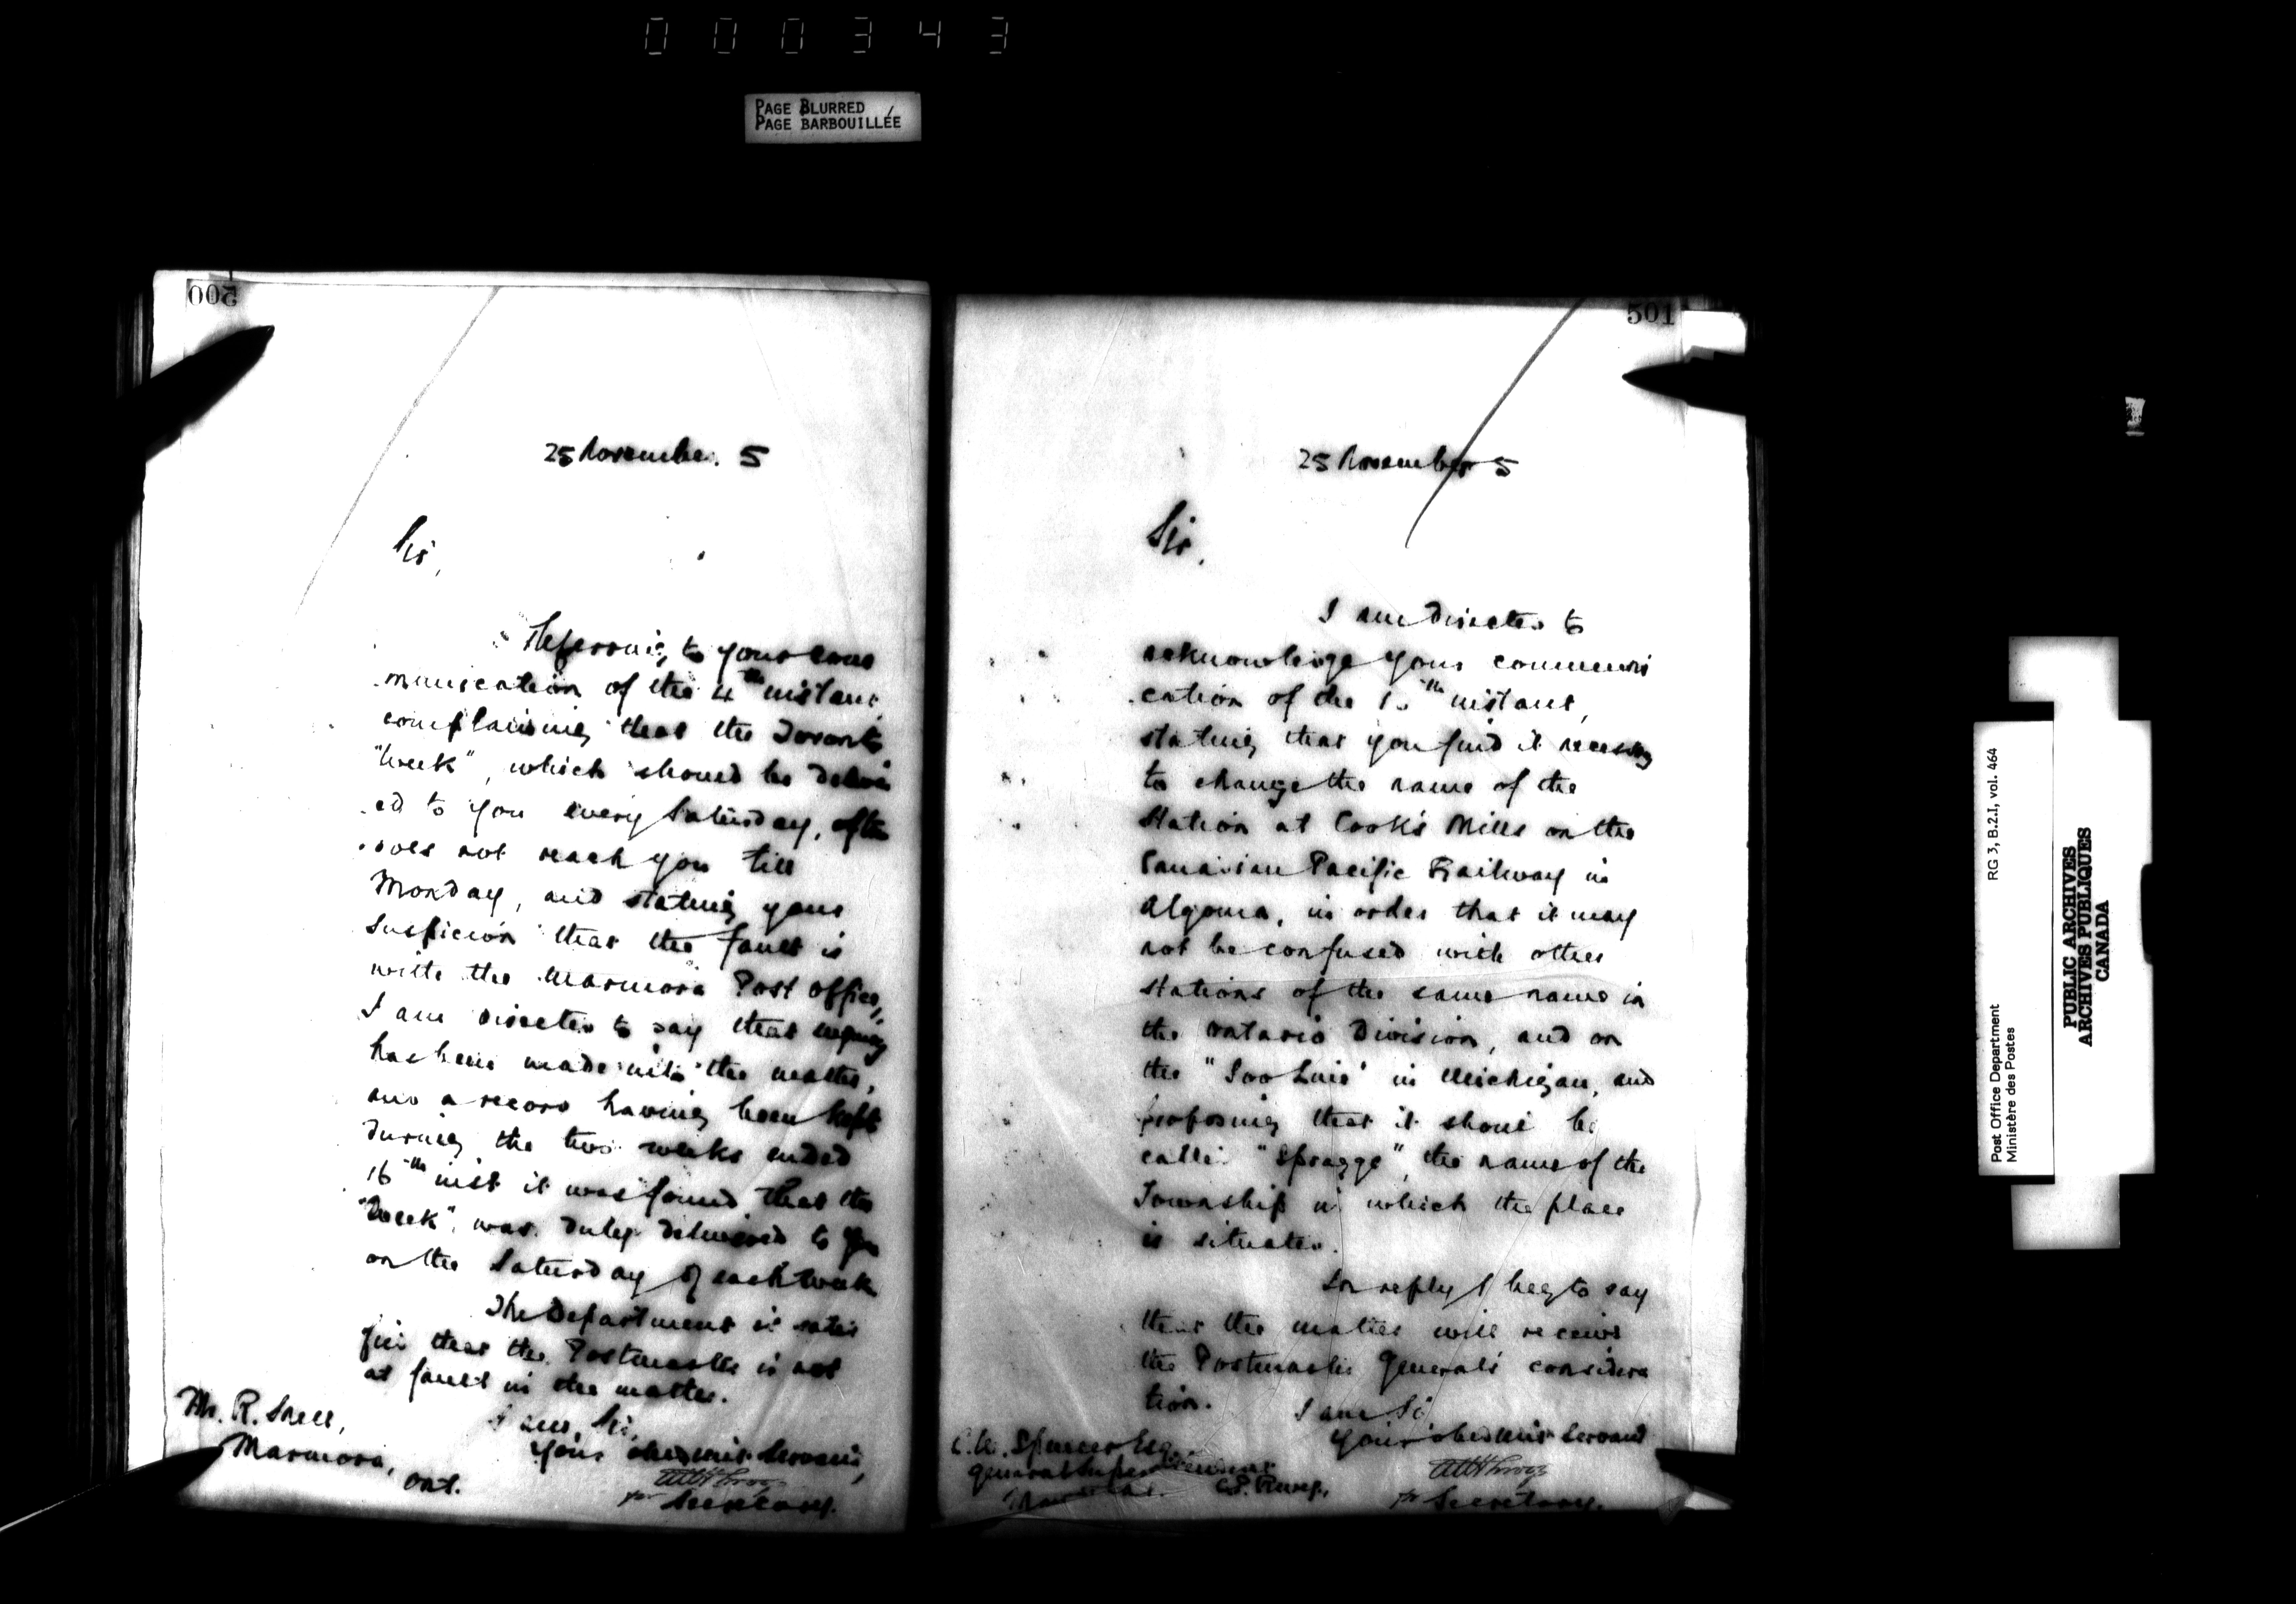 000343
PAGE BLURRED
PAGE BARBOUILLÉE
500
25 November. 5
Sir,
Referring to your com
munication of the 4th instant,
complaining that the Toronto
"Week", which should be deliver
ed to you every Saturday, often
does not reach you till
Monday, and stating your
suspicion that the fault is
with the Marmora Post Office,
I am directed to say that inquiry
has been made into the matter,
and a record having been kept
during the two weeks ended
16th inst it was found that the
"Week" was duly delivered to you
on the Saturday of each week
The Department is satis
fied that the Postmaster is not
at fault in the matter.
I am, Sir,
Your obedient Servant,
for Secretary.
Mr. R. Snell,
Marmora,
Ont.
501
25 November 5
Sir,
I am directed to
acknowledge your communi
cation of the instant,
stating that you find it necessary
to change the name of the
Station at Cook's Mills on the
Canadian Pacific Railway in
Algoma, in order that it may
not be confused with other
stations of the same name in
the Ontario Division, and on
the "Soo Line" in Michigan, and
proposing that it should be
called "Spragge", the name of the
Township in which the place
is situated.
In reply I beg to say
that the matter will receive
the Postmaster General's considera
tion.
I am Sir
Your obedient Servant
for Secretary.
C.W. Spencer Esq
General Superintendent
C.P. Railway,
Post Office Department
Ministère des Postes
RG 3, B.2.I, vol. 464
PUBLIC ARCHIVES
ARCHIVES PUBLIQUES
CANADA